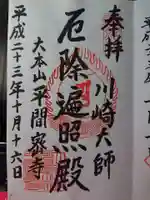 奉拝
川崎大師
厄除遍照殿
大本山平間寺
平成二十三年十月十六日